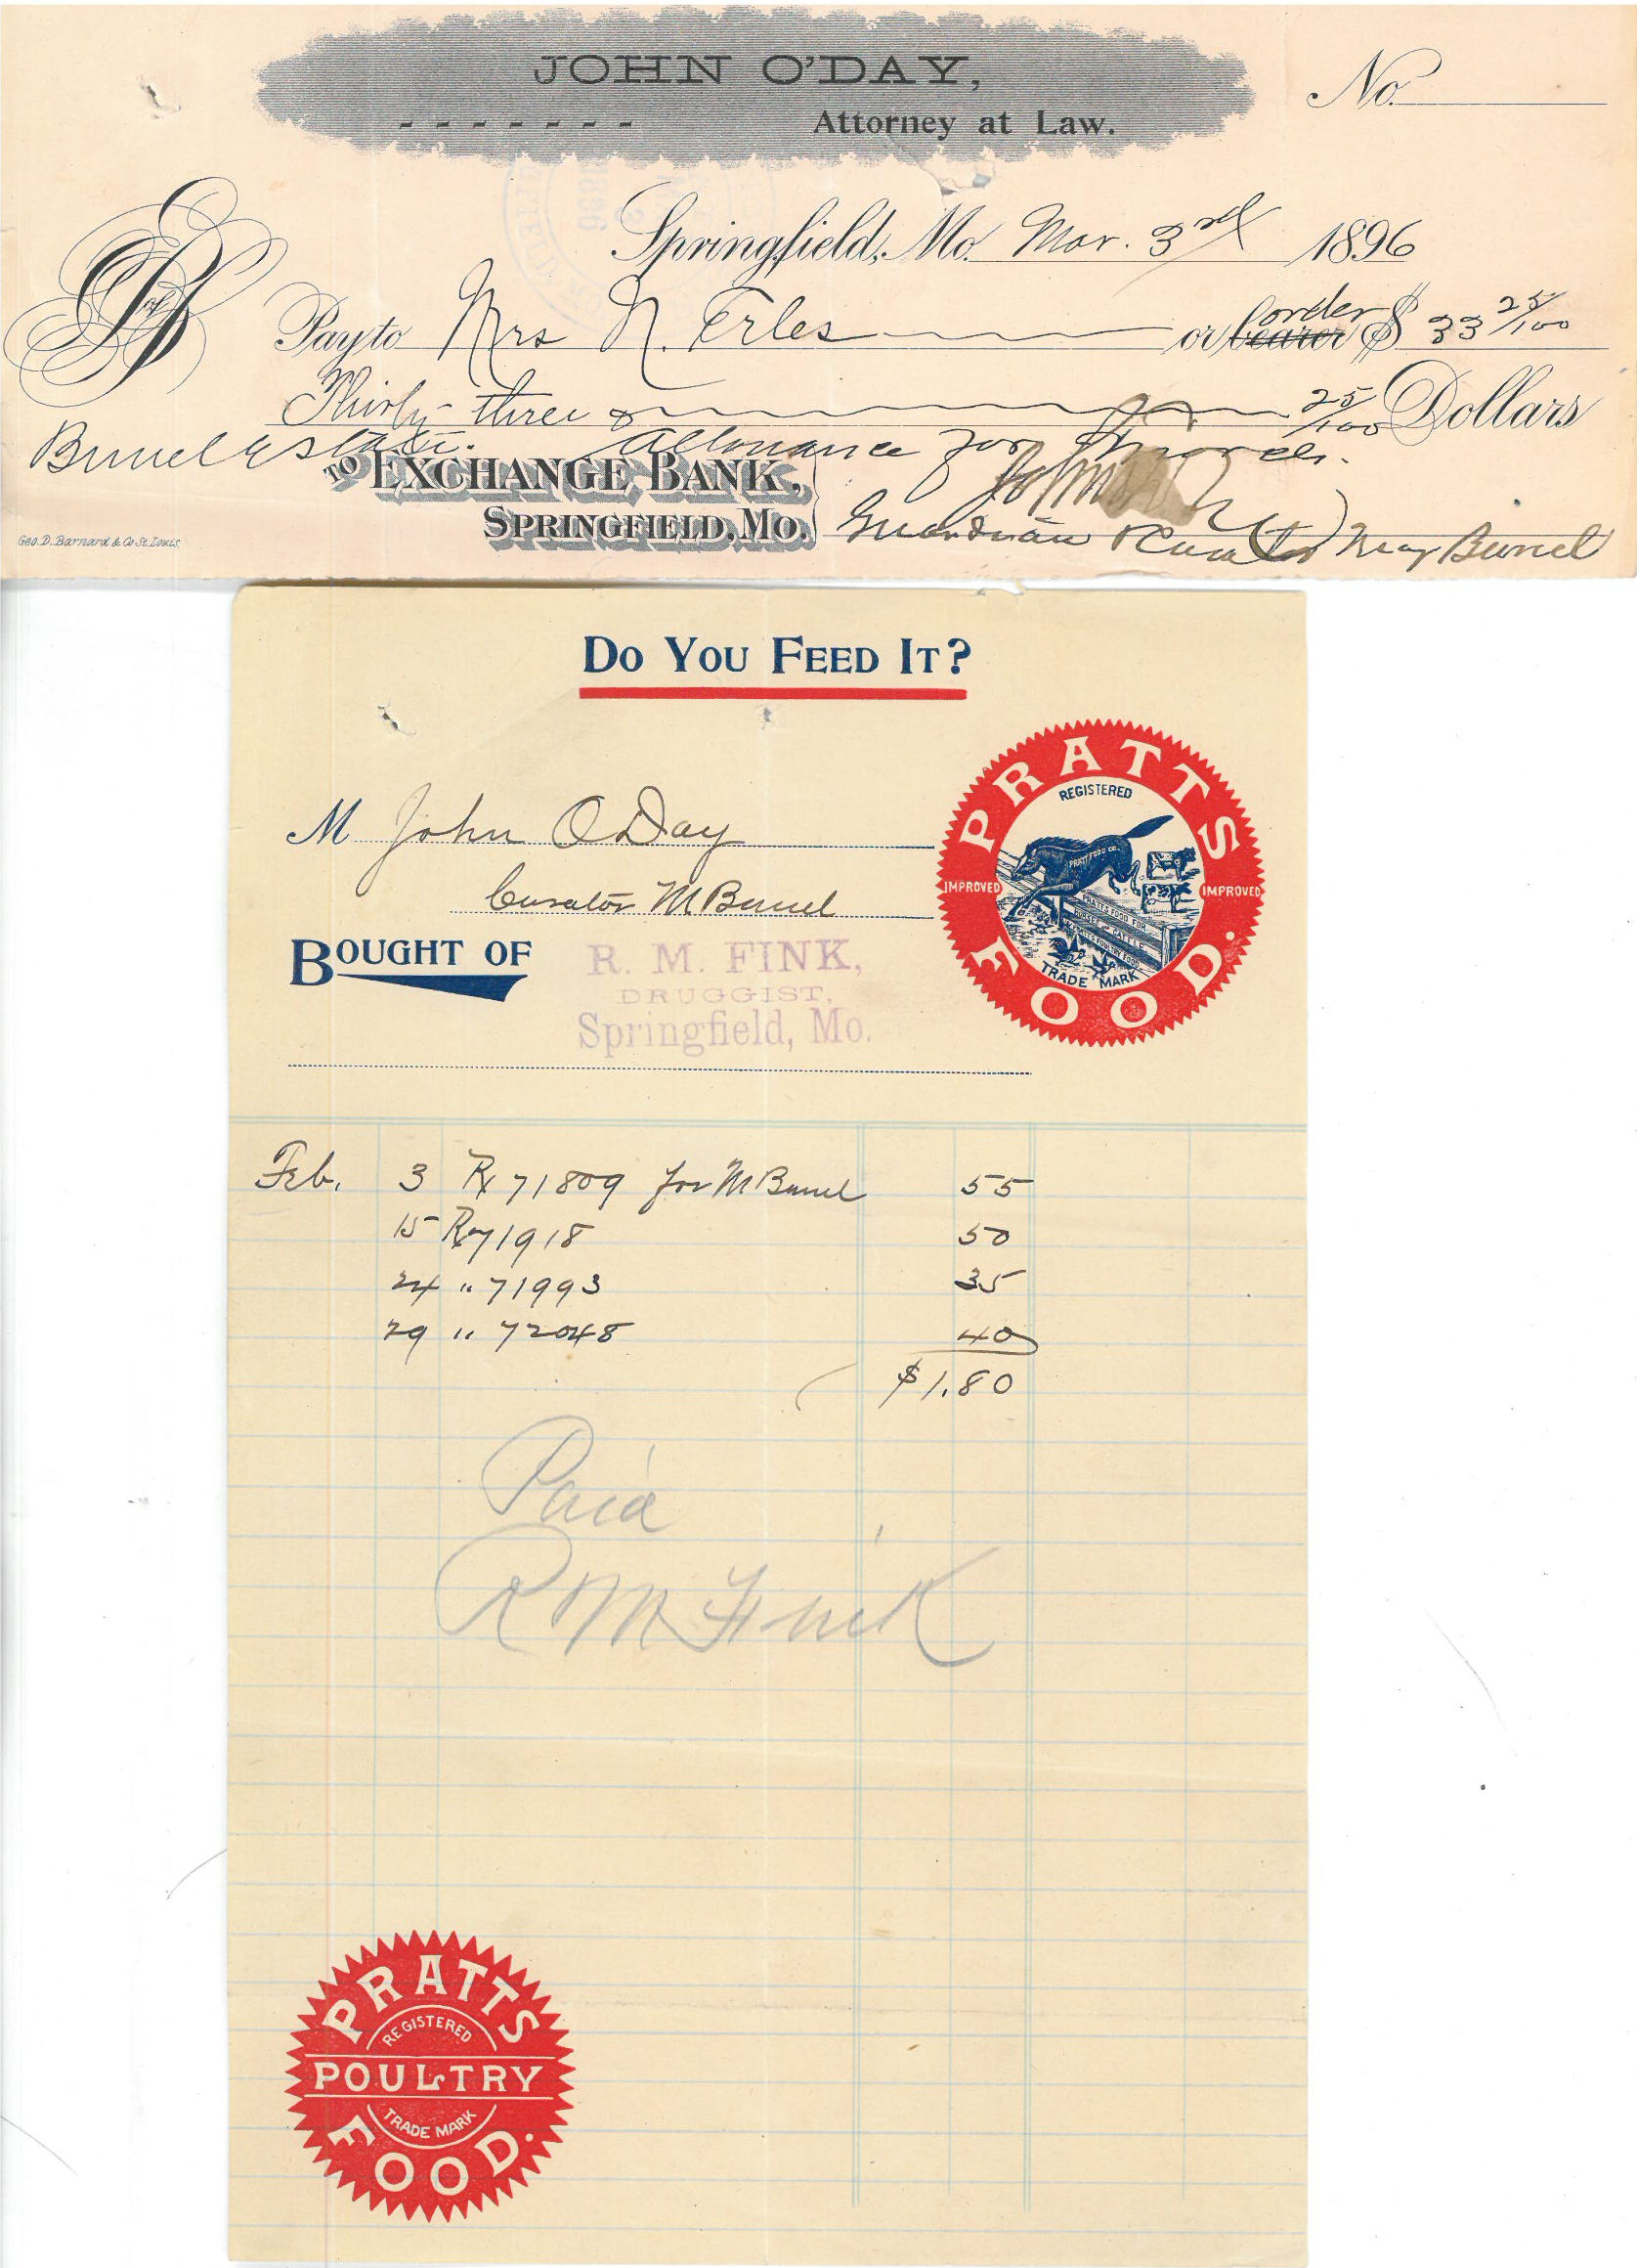 JOHN O'DAY,
Attorney at Law.
No.
Springfield, Mo. Mar. 3rd 1896
Pay to Mrs N. Erles or bearer order $ 33 25/100
Thirty-three & 25/100 Dollars
Estate. Allowance for March.
TO EXCHANGE BANK,
SPRINGFIELD, MO.
John
Guardian & Curator May
Geo. D. Barnard & Co St. Louis.
DO YOU FEED IT?
M John O'Day
Curator M
BOUGHT OF R. M. FINK,
DRUGGIST,
Springfield, Mo.
PRATTS FOOD.
REGISTERED
IMPROVED IMPROVED
PRATT FOOD CO.
PRATTS FOOD FOR
HORSES AND CATTLE
PRATTS POULTRY FOOD
TRADE MARK
Feb. 3 Rx 71809 for M 55
15 Rx 71918 50
24 " 71993 35
29 " 72048 40
$1.80
Paid
R M Fink
PRATTS
REGISTERED
POULTRY
TRADE MARK
FOOD.